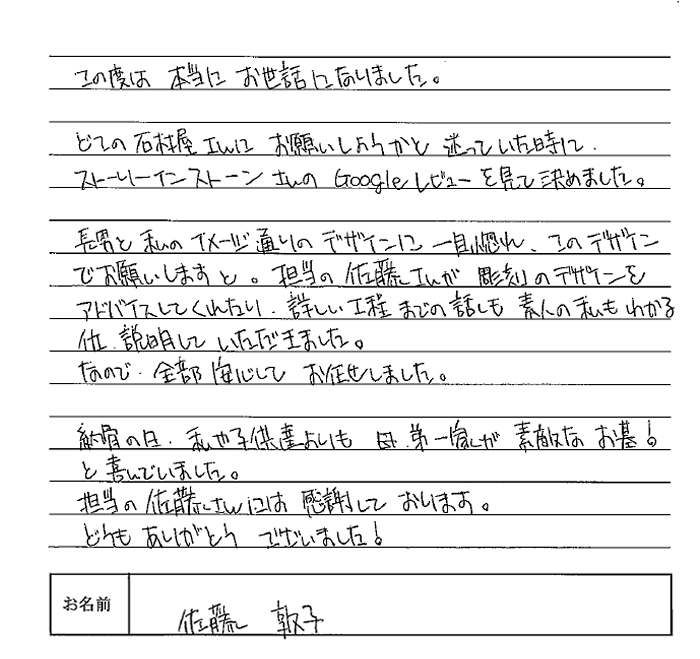 この度は 本当に お世話になりました。
どこの石材屋さんに お願いしようかと 迷っていた時に、
ストーリーインストーンさんの Googleレビューを見て決めました。
長男と私のイメージ通りの デザインに 一目惚れ、このデザイン
でお願いしますと。担当の 佐藤さんが 彫刻のデザインを
アドバイスしてくれたり、詳しい工程までの話しも 素人の私もわかる
位、説明して いただきました。
なので、全部安心して お任せしました。
納骨の日、私や子供達よりも 母、弟一家が 素敵な お墓!
と喜んでいました。
担当の佐藤さんには 感謝して おります。
どうも ありがとう ございました!
お名前 佐藤 敦子